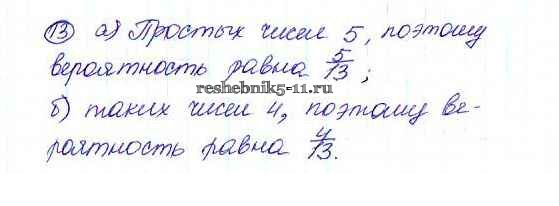 13 а) Простых чисел 5, поэтому
вероятность равна 5/13;
reshebnik5-11.ru
б) таких чисел 4, поэтому ве-
роятность равна 4/13.